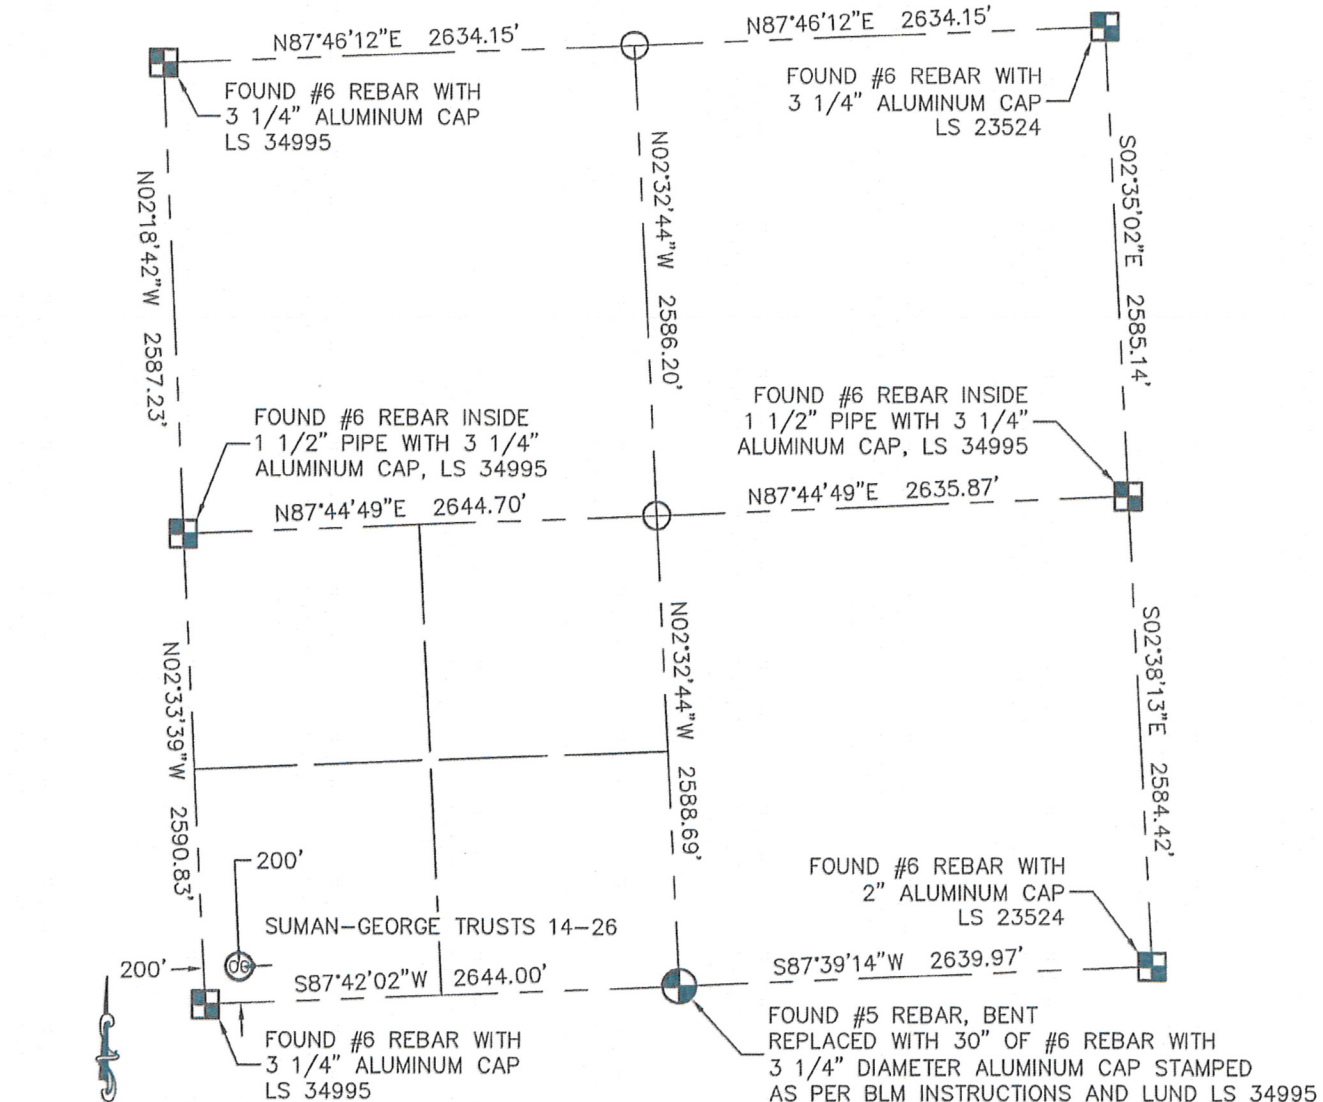 N87°46'12"E 2634.15'
N87°46'12"E 2634.15'
FOUND #6 REBAR WITH
3 1/4" ALUMINUM CAP
LS 34995
FOUND #6 REBAR WITH
3 1/4" ALUMINUM CAP
LS 23524
N02°18'42"W 2587.23'
N02°32'44"W 2586.20'
S02°35'02"E 2585.14'
FOUND #6 REBAR INSIDE
1 1/2" PIPE WITH 3 1/4"
ALUMINUM CAP, LS 34995
FOUND #6 REBAR INSIDE
1 1/2" PIPE WITH 3 1/4"
ALUMINUM CAP, LS 34995
N87°44'49"E 2644.70'
N87°44'49"E 2635.87'
N02°33'39"W 2590.83'
N02°32'44"W 2588.69'
S02°38'13"E 2584.42'
200'
SUMAN-GEORGE TRUSTS 14-26
FOUND #6 REBAR WITH
2" ALUMINUM CAP
LS 23524
200'
OG
S87°42'02"W 2644.00'
S87°39'14"W 2639.97'
FOUND #6 REBAR WITH
3 1/4" ALUMINUM CAP
LS 34995
FOUND #5 REBAR, BENT
REPLACED WITH 30" OF #6 REBAR WITH
3 1/4" DIAMETER ALUMINUM CAP STAMPED
AS PER BLM INSTRUCTIONS AND LUND LS 34995